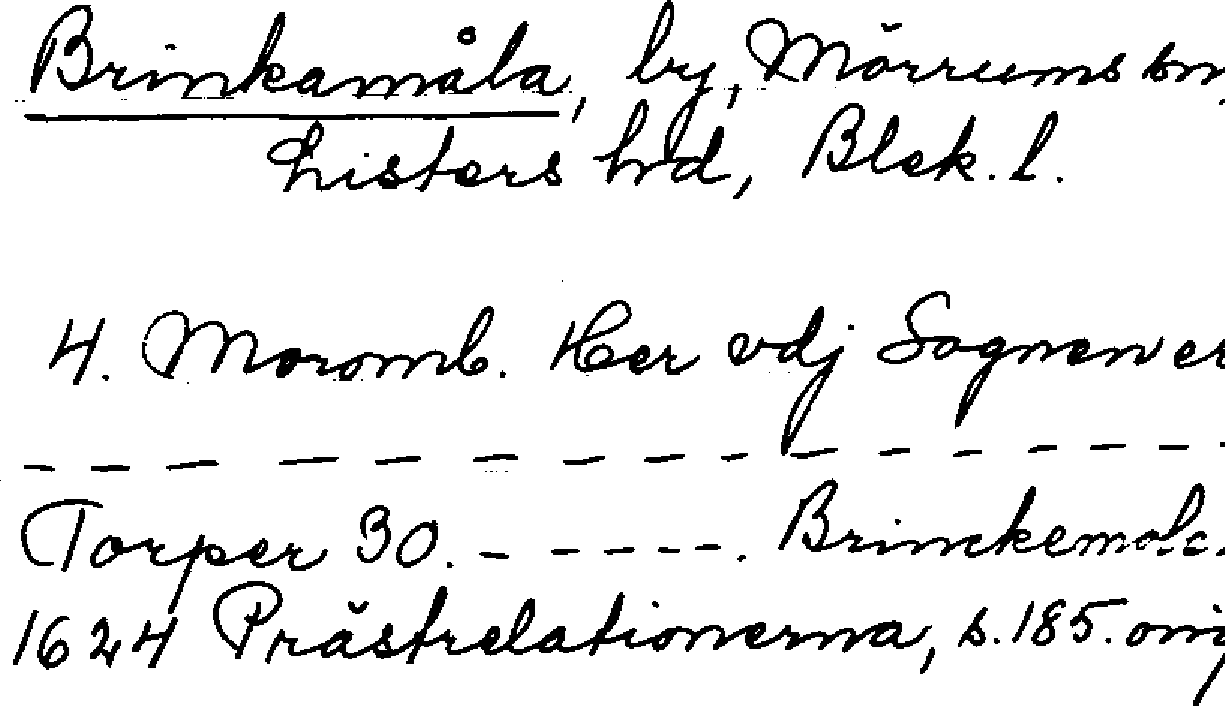 Brinkamåla, by, Mörrums sn,
Listers hd, Blek. l.
4. Moromb. Her vdj Sognen er
— — — — — — — — — — — — — —
Torper 30. - - - - - -. Brinckemole.
1624 Prästrelationerna, s. 185. orig